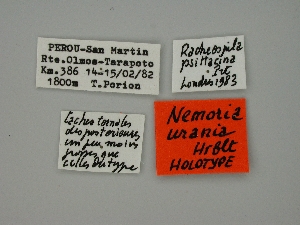 PEROU-San Martin
Rte.Olmos-Tarapoto
Km.386 14-15/02/82
1800m T.Porion
Racheospila
psittacina
Londres 1983
Taches tornales
des postérieures
un peu moins
que
celles du type
Nemoria
urania
Hrblt
HOLOTYPE